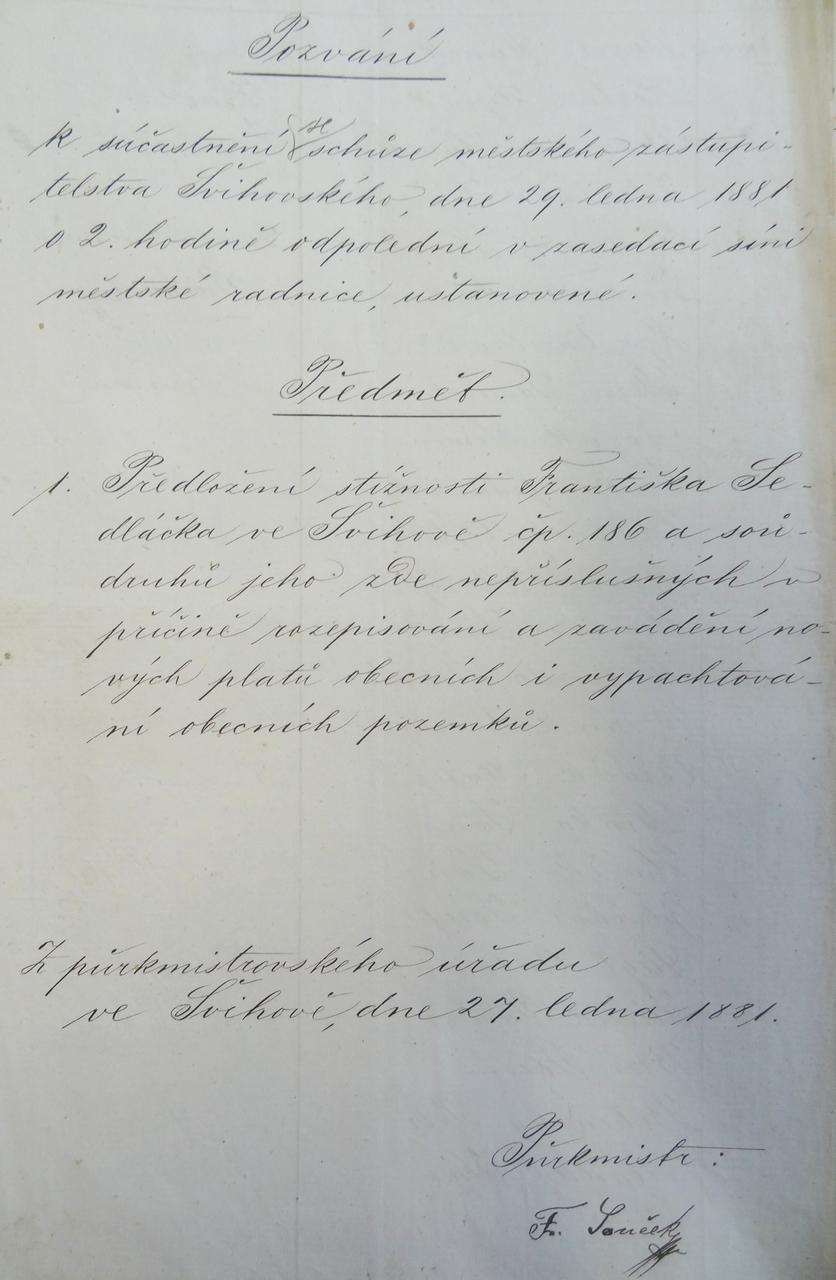 Pozvání
k súčastnění se schůze městského zástupi-
telstva Švihovského, dne 29. ledna 1881
o 2. hodině odpolední v zasedací síni
městské radnice, ustanovené.
Předmět.
1. Předložení stížnosti Františka Se-
dláčka ve Švihově čp. 186 a sou-
druhů jeho zde nepříslušných v
příčině rozepisování a zavádění no-
vých platů obecních i vypachtová-
ní obecních pozemků.
Z purkmistrovského úřadu
ve Švihově, dne 27. ledna 1881.
Purkmistr:
F. Souček